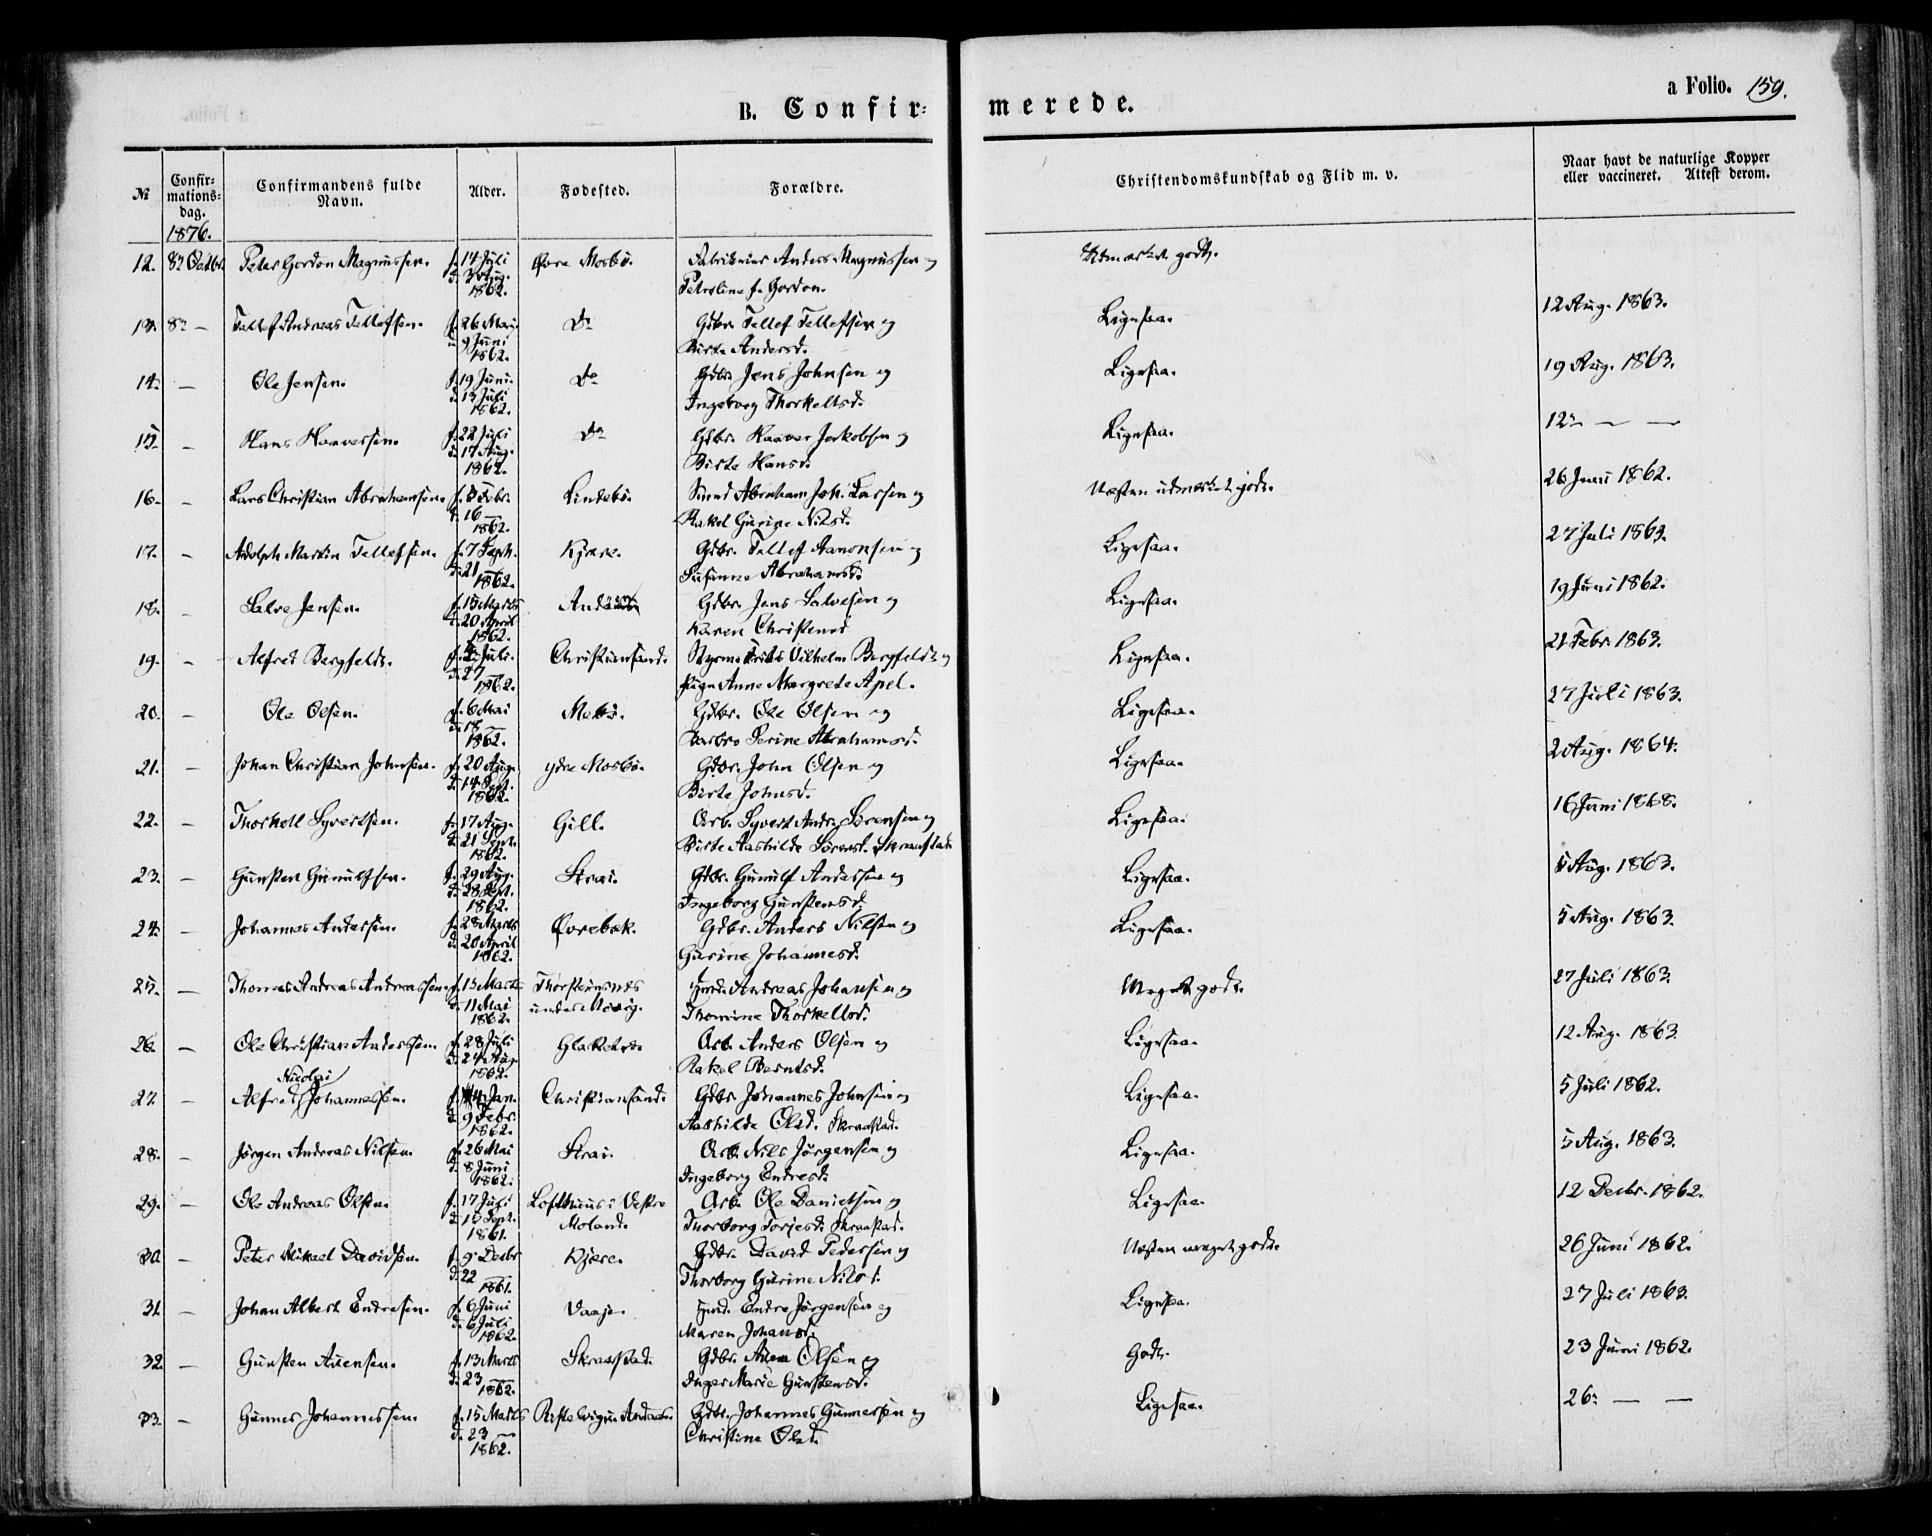 B. Confir-
merede.
a Folio. 159.
No
Confir-
mations-
dag.
Confirmandens fulde
Navn.
Alder.
Fødested.
Forældre.
Christendomskundskab og Flid m. v.
Naar havt de naturlige Kopper
eller vaccineret. Attest derom.
1876.
12. 8n Octbr Peter Gordon Magnussen. f. 14 Juli Øvre Mosbö. Anders Magnussen og Udmærket godt.
d. 3 Aug. Petroline f. Gordon.
1862.
13. 8n — Tellef Andreas Tellefsen. f. 26 Mai Do Gdbr. Tellef Tellefsen og Ligesaa. 12 Aug. 1863.
9 Juni Birte Andersd.
1862.
14. — Ole Jensen. f. 19 Juni Do Gdbr. Jens Johnsen og Ligesaa. 19 Aug. 1863.
d. 13 Juli Ingeborg Thorkelsd.
1862.
15. — Hans Haaversen. f. 22 Juli Do Gdbr. Haaver Jakobsen og Ligesaa. 12 — —
d. 17 Aug. Birte Hansd.
1862.
16. — Lars Christian Abrahamsen. f. 8 Febr. Lindebö. Smed Abraham Joh. Larsen og Næsten udmærket godt. 26 Juni 1862.
d. 16 — Rakel Gurine Nilsd.
1862.
17. — Adolph Martin Tellefsen. f. 7 Septr. Kjære. Gdbr. Tellef Aanonsen og Ligesaa. 27 Juli 1863.
d. 21 — Susanne Abrahamsd.
1862.
18. — Salve Jensen. f. 15 Marts Gdbr. Jens Salvesen og Ligesaa. 19 Juni 1862.
d. 20 April Karen Christensd
1862.
19. — Alfred Bergfeldt. f. Juli. Christiansand. Styrmd Frits Vilhelm Bergfeldt og Ligesaa. 21 Febr. 1863.
d. 27 — Pige Anne Margrete Apel.
1862.
20. — Ole Olsen. f. 6 Mai Mebö. Gdbr. Ole Olsen og Ligesaa. 27 Juli 1863.
d. 18 — Barbro Serine Abrahamsd.
1862.
21. — Johan Christian Johnsen. f. 20 Aug. ydre Mosbö. Gdbr. John Olsen og Ligesaa. 2 Aug. 1864.
d. 14 Spt. Birte Johnsd.
1862.
22. — Thorkell Syvertsen. f. 17 Aug. Gill. Arb. Syvert Andr. Sörensen og Ligesaa. 16 Juni 1868.
d. 21 Sept. Birte Aashilde Sörensd. Skraastad
1862.
23. — Gunsten Gunulfsen. f. 29 Aug. Strai. Gdbr. Gunulf Andersen og Ligesaa. 5 Aug. 1863.
d. 28 Sept. Ingeborg Gunstensd.
1862.
24. — Johannes Andersen. f. 28 Marts Øvrebæk. Gdbr. Anders Nilsen og Ligesaa. 5 Aug. 1863.
d. 20 April Gurine Johannesd.
1862.
25. — Thomas Andreas Andreassen. f. 15 Marts Thorsteinsnes Andreas Johansen og Meget godt. 27 Juli 1863.
d. 11 Mai under Mosvig. Thomine Thorkellsd.
1862.
26. — Ole Christian Andersen. f. 28 Juli Arb. Anders Olsen og Ligesaa. 12 Aug. 1863.
d. 24 Aug. Rakel Berntsd.
1862.
Nicolai
27. — Alfred Johannessen. f. Jan. Christiansand. Gdbr. Johannes Johnsen og Ligesaa. 5 Juli 1862.
d. 9 Febr. Aashilde Olsd. Skraastad.
1862.
28. — Jörgen Andreas Nilsen. f. 26 Mai Strai. Arb. Nils Jörgensen og Ligesaa. 5 Aug. 1863.
d. 8 Juni Ingeborg Endresd.
1862.
29. — Ole Andreas Olsen. f. 17 Juli Lofthuus i Vestre Arb. Ole Danielsen og Ligesaa. 12 Decbr. 1862.
d. 15 Sept. Moland. Thorborg Torjesd. Skraastad.
1861.
30. — Peter Mikael Davidsen. f. 9 Decbr Kjære. Gdbr. David Pedersen og Næsten meget godt. 26 Juni 1862.
d. 22 — Thorborg Gurine Nilsd.
1861.
31. — Johan Albert Endresen. f. 6 Juni Vaaje. Endre Jörgensen og Ligesaa. 27 Juli 1863.
d. 6 Juli Maren Johansd.
1862.
32. — Gunsten Auensen. f. 13 Marts Skraastad. Gdbr. Auen Olsen og Godt. 23 Juni 1862.
d. 23 — Inger Marie Gunstensd.
1862.
33. — Gunnes Johannessen. f. 15 Marts Gdbr. Johannes Gunnersen og Ligesaa. 26 — —
d. 23 — Christine Olsd.
1862.